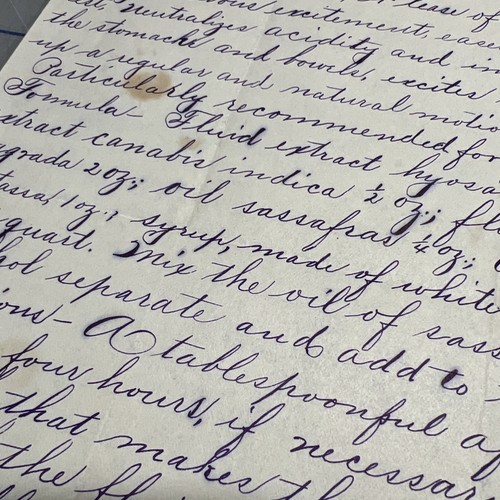 nous excitement, ease
Neutralizes acidity and in
the stomache and bowels, excites
up a regular and natural motio
Particularly recommended for
Formula— Fluid extract hyosc
xtract canabis indica ½ oz; flu
agrada 2 oz; oil sassafras ¼ oz;
tassa, 1 oz; syrup, made of white
quart. Mix the oil of sass
hol separate and add to
ions— A tablespoonful a
four hours, if necessar
that makes th
the fl